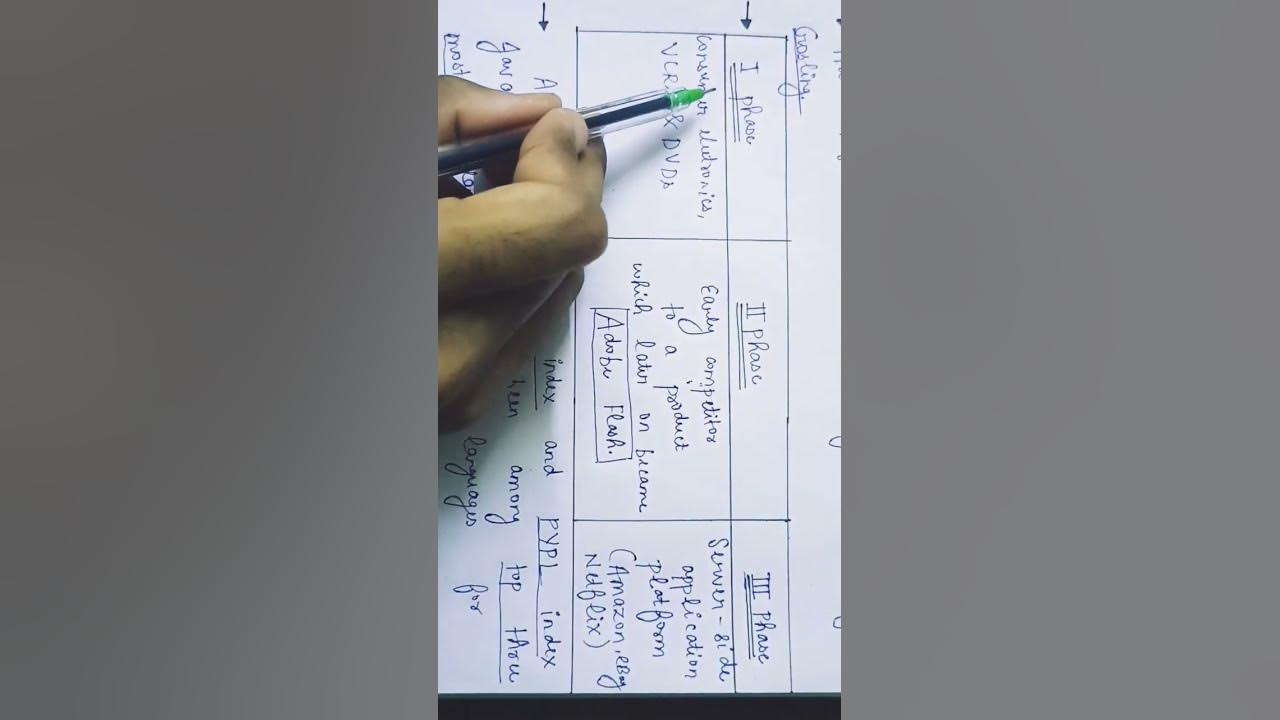 Gosling.
I phase
II phase
III phase
consumer elutronics,
VCRs & DVDs
Early competitor
to a product
which later on became
Adobe Flash.
Server-side
application
platform
(Amazon, eBay
Netflix)
A
index and PYPL index
Java
been among top three
most
languages for